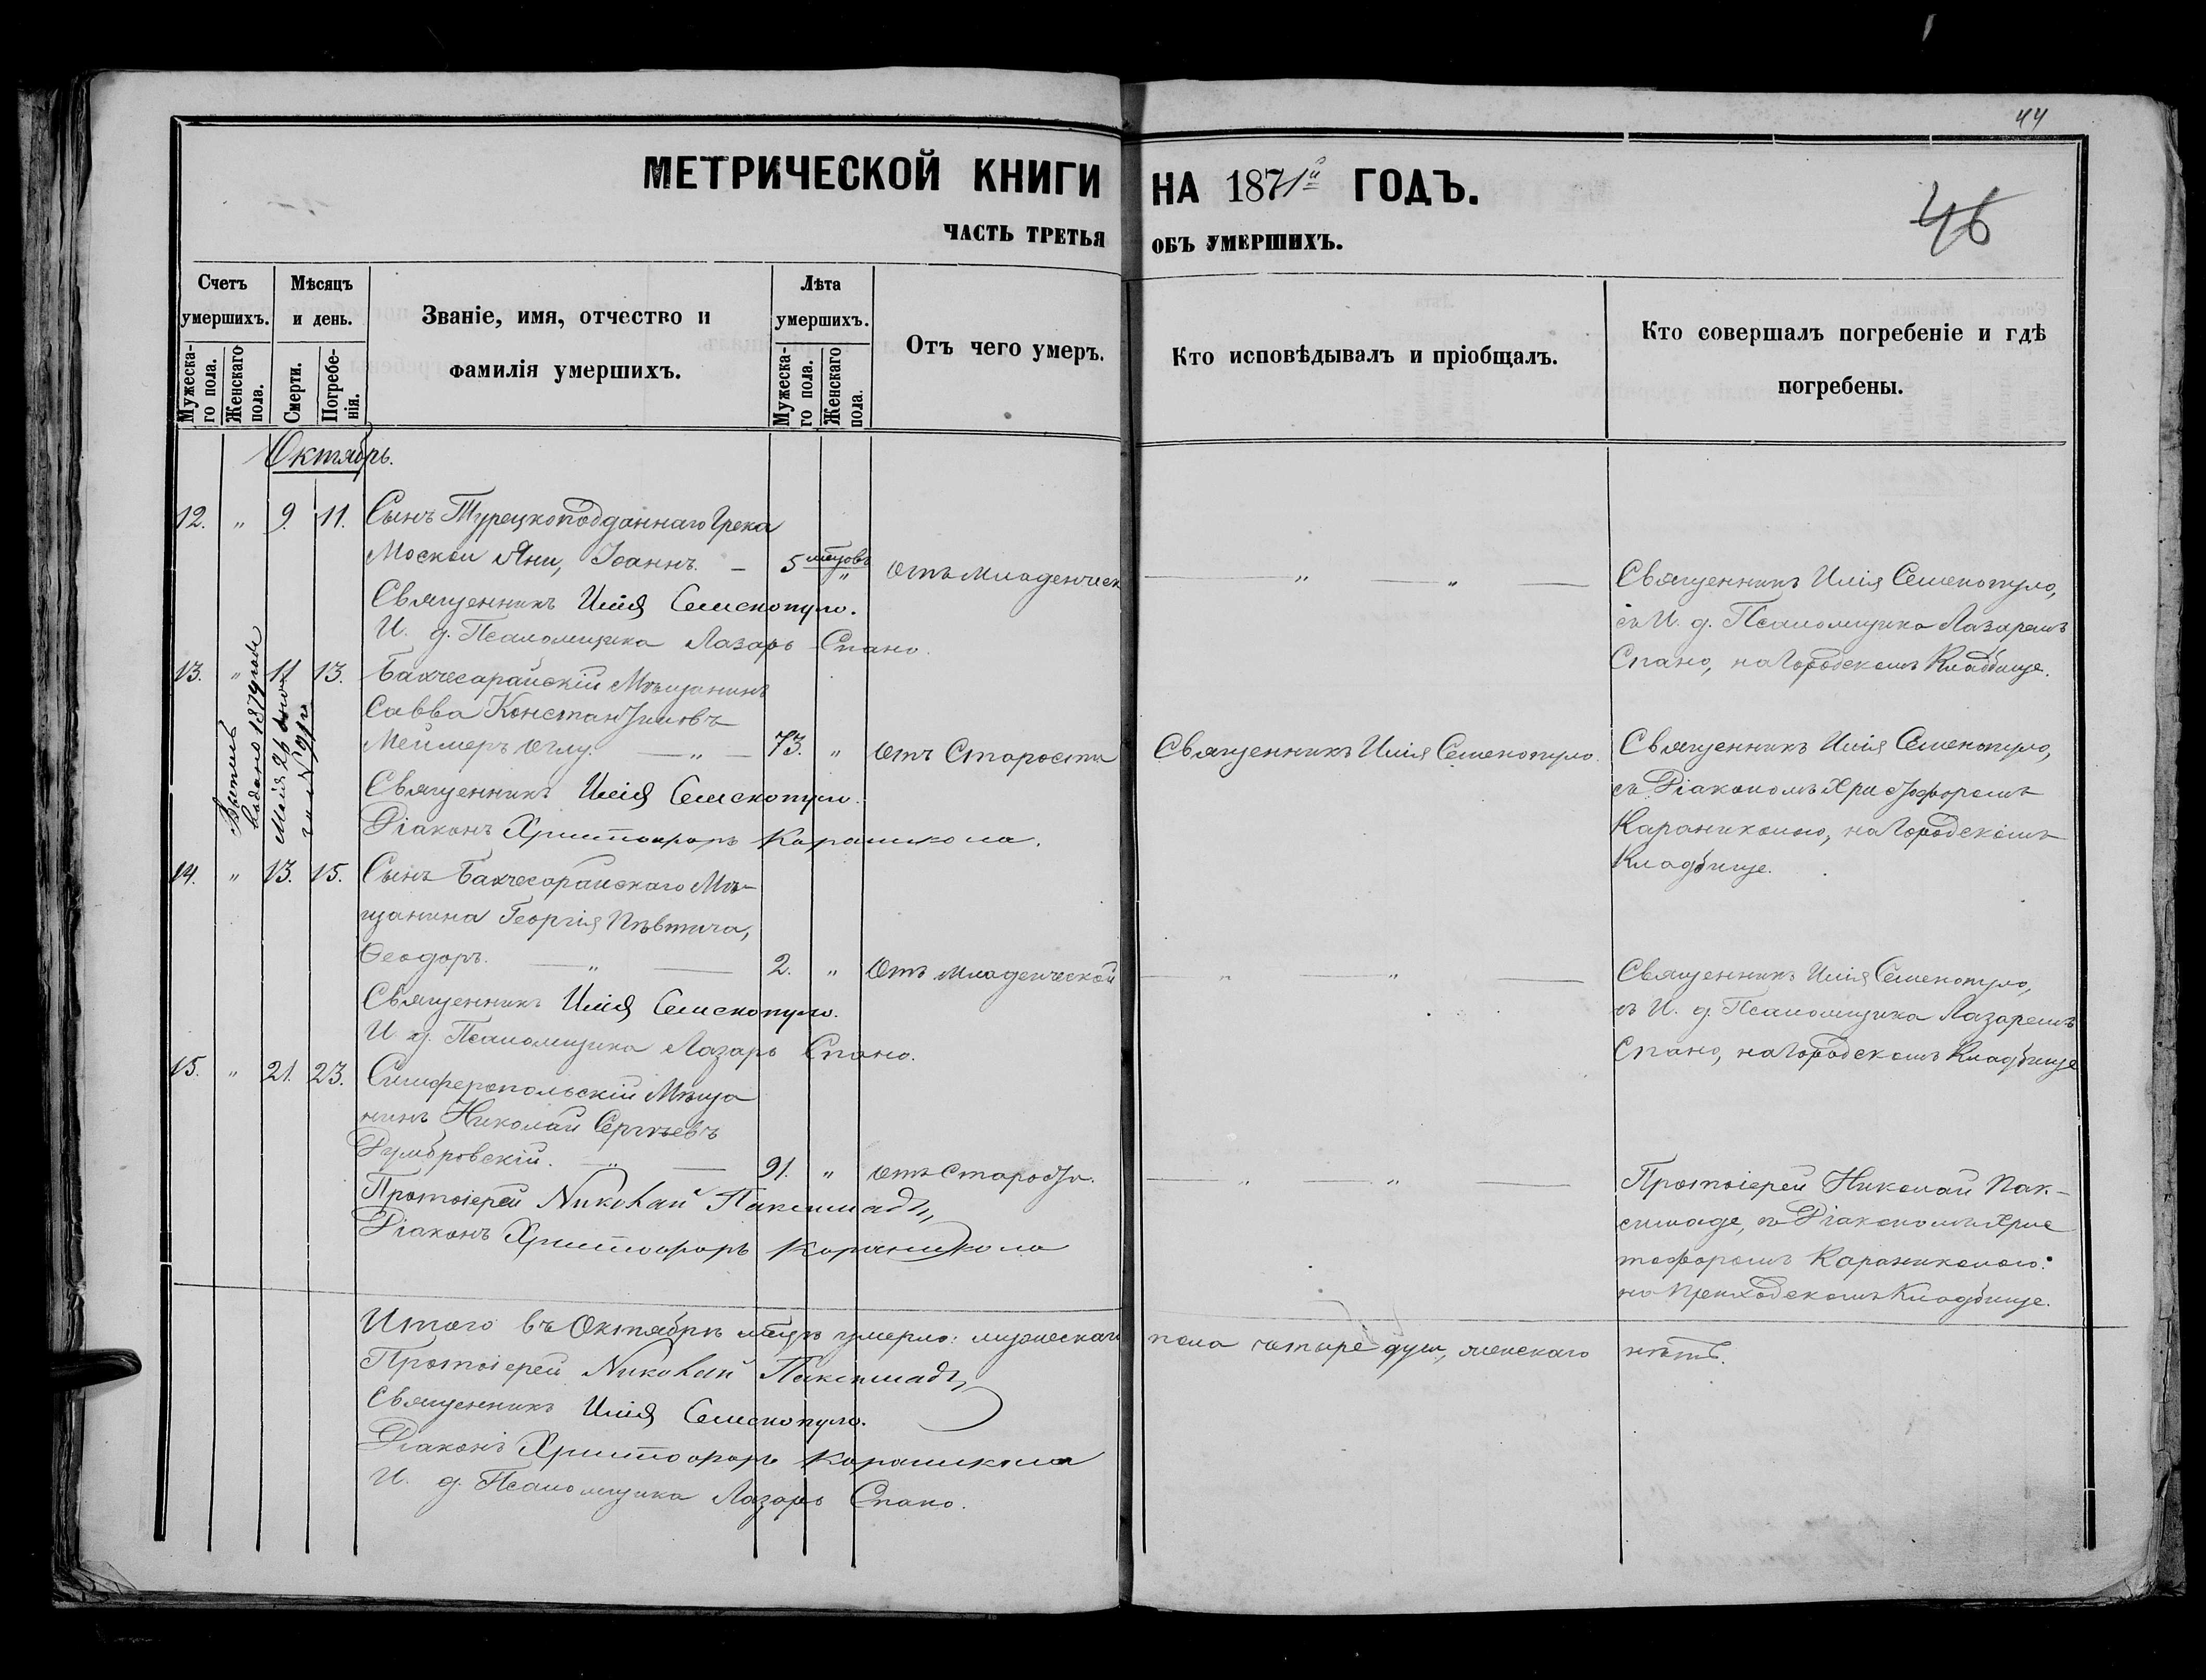 44
46
МЕТРИЧЕСКОЙ КНИГИ НА 1871й ГОДЪ.
ЧАСТЬ ТРЕТЬЯ ОБЪ УМЕРШИХЪ.
Счетъ умершихъ.
Мужеска-го пола.
Женскаго пола.
Мѣсяцъ и день.
Смерти.
Погребе-нія.
Званіе, имя, отчество и фамилія умершихъ.
Лѣта умершихъ.
Мужеска-го пола.
Женскаго пола.
Отъ чего умеръ.
Кто исповѣдывалъ и пріобщалъ.
Кто совершалъ погребеніе и гдѣ погребены.
Октябрь.
12. " 9. 11. Сынъ Турецкоподданнаго Грека
Москои Яни, Іоаннъ. — 5 мѣсяцовъ " Отъ младенческ — " — " —
Священникъ Илія Семенопуло.
И. д. Псаломщика Лазарь Спано.
Священникъ Илія Семенопуло,
съ И. д. Псаломщика Лазаремъ
Спано, на Городскомъ Кладбище.
13. " 11. 13. Бахчесарайскій Мѣщанинъ
Савва Константиновъ
Меймеръ Оглу. — " — 73. " Отъ Старости Священникъ Илія Семенопуло.
Священникъ Илія Семенопуло.
Діаконъ Христофоръ Караникола.
Священникъ Илія Семенопуло,
съ Діакономъ Христофоромъ
Караниколою, на Городскомъ
Кладбище.
1879 года
Мая 26
14. " 13. 15. Сынъ Бахчесарайскаго Мѣ-
щанина Георгія
Ѳеодоръ. — " — 2. " Отъ младенческой — " — " —
Священникъ Илія Семенопуло.
И. д. Псаломщика Лазарь Спано.
Священникъ Илія Семенопуло,
съ И. д. Псаломщика Лазаремъ
Спано, на Городскомъ Кладбище
15. " 21. 23. Симферопольскій Мѣща
нинъ Николай Сергѣевъ
Думбровскій. — " — 91. " Отъ Старости. — " — " —
Протоіерей Николай Паксимади,
Діаконъ Христофоръ Караникола
Протоіерей Николай Пак-
симаде, съ Діакономъ Хрис
тофоромъ Караниколою:
на Приходскомъ Кладбище.
Итого въ Октябрѣ мѣсяцѣ умерло: мужескаго пола четыре души, женскаго нѣтъ.
Протоіерей Николай Паксимади,
Священникъ Илія Семенопуло.
Діаконъ Христофоръ Караникола
И. д. Псаломщика Лазарь Спано.